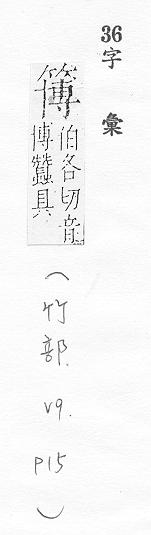 36
字彙
簙
伯各切音
博蠶具
（竹部. V9. P15）